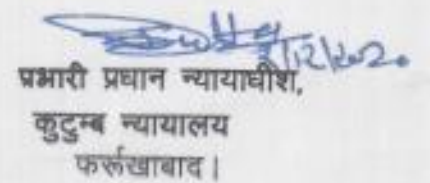 8/12/2020
प्रभारी प्रधान न्यायाधीश,
कुटुम्ब न्यायालय
फर्रूखाबाद।